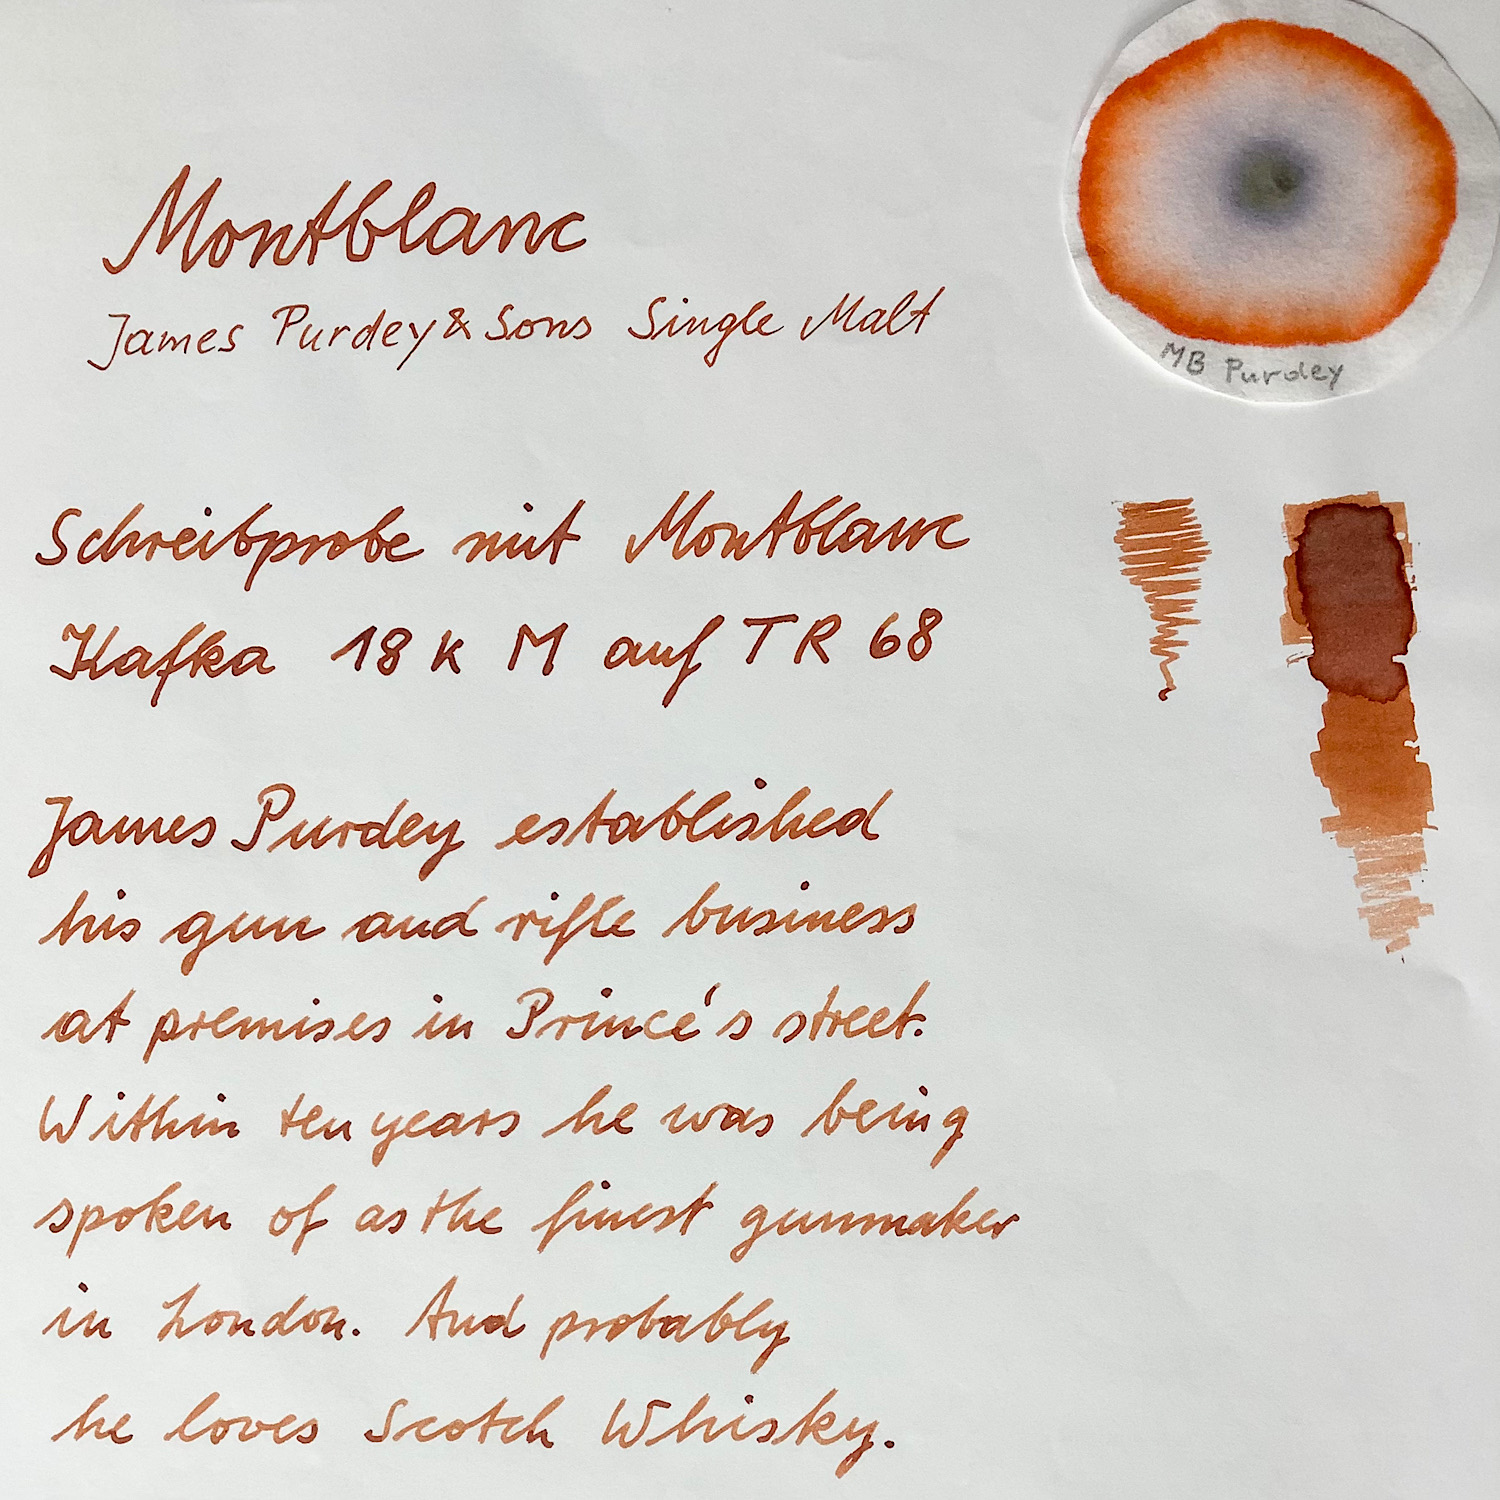 Montblanc
James Purdey & Sons Single Malt
MB Purdey
Schreibprobe mit Montblanc
Kafka 18 K M auf TR 68
James Purdey established
his gun and rifle business
at premises in Prince's street.
Within ten years he was being
spoken of as the finest gunmaker
in London. And probably
he loves Scotch Whisky.